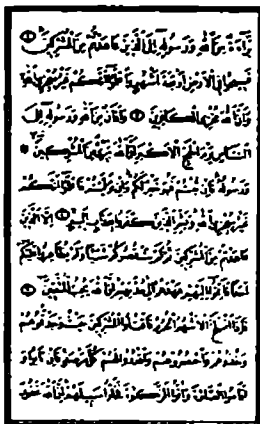 براءة من الله ورسوله إلى الذين عاهدتم من المشركين
فسيحوا في الأرض أربعة أشهر واعلموا أنكم غير معجزي الله
وأن الله مخزي الكافرين وأذان من الله ورسوله إلى
الناس يوم الحج الأكبر أن الله بريء من المشركين
ورسوله فإن تبتم فهو خير لكم وإن توليتم فاعلموا أنكم
غير معجزي الله وبشر الذين كفروا بعذاب أليم إلا الذين
عاهدتم من المشركين ثم لم ينقصوكم شيئا ولم يظاهروا عليكم
أحدا فأتموا إليهم عهدهم إلى مدتهم إن الله يحب المتقين
فإذا انسلخ الأشهر الحرم فاقتلوا المشركين حيث وجدتموهم
وخذوهم واحصروهم واقعدوا لهم كل مرصد فإن تابوا و
أقاموا الصلوة وآتوا الزكوة فخلوا سبيلهم إن الله غفور